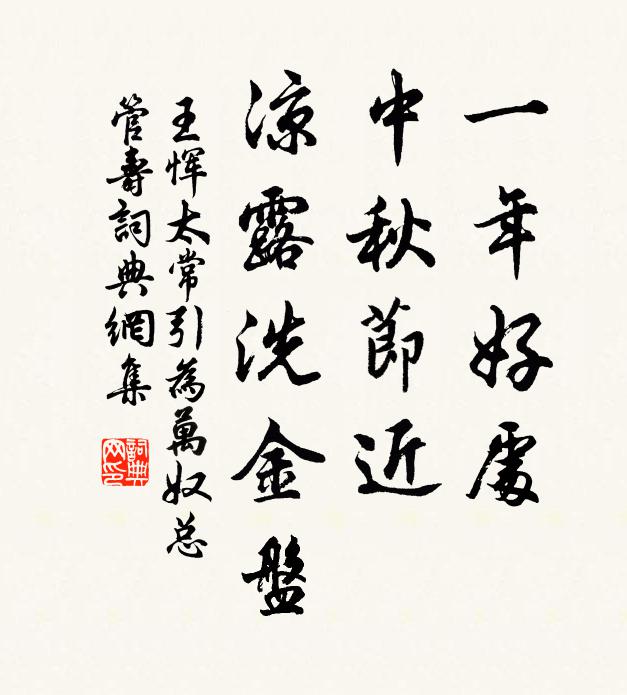 一年好處
中秋節近
涼露洗金盤
王惲太常引為萬奴总
管壽詞典網集
詞典
网印